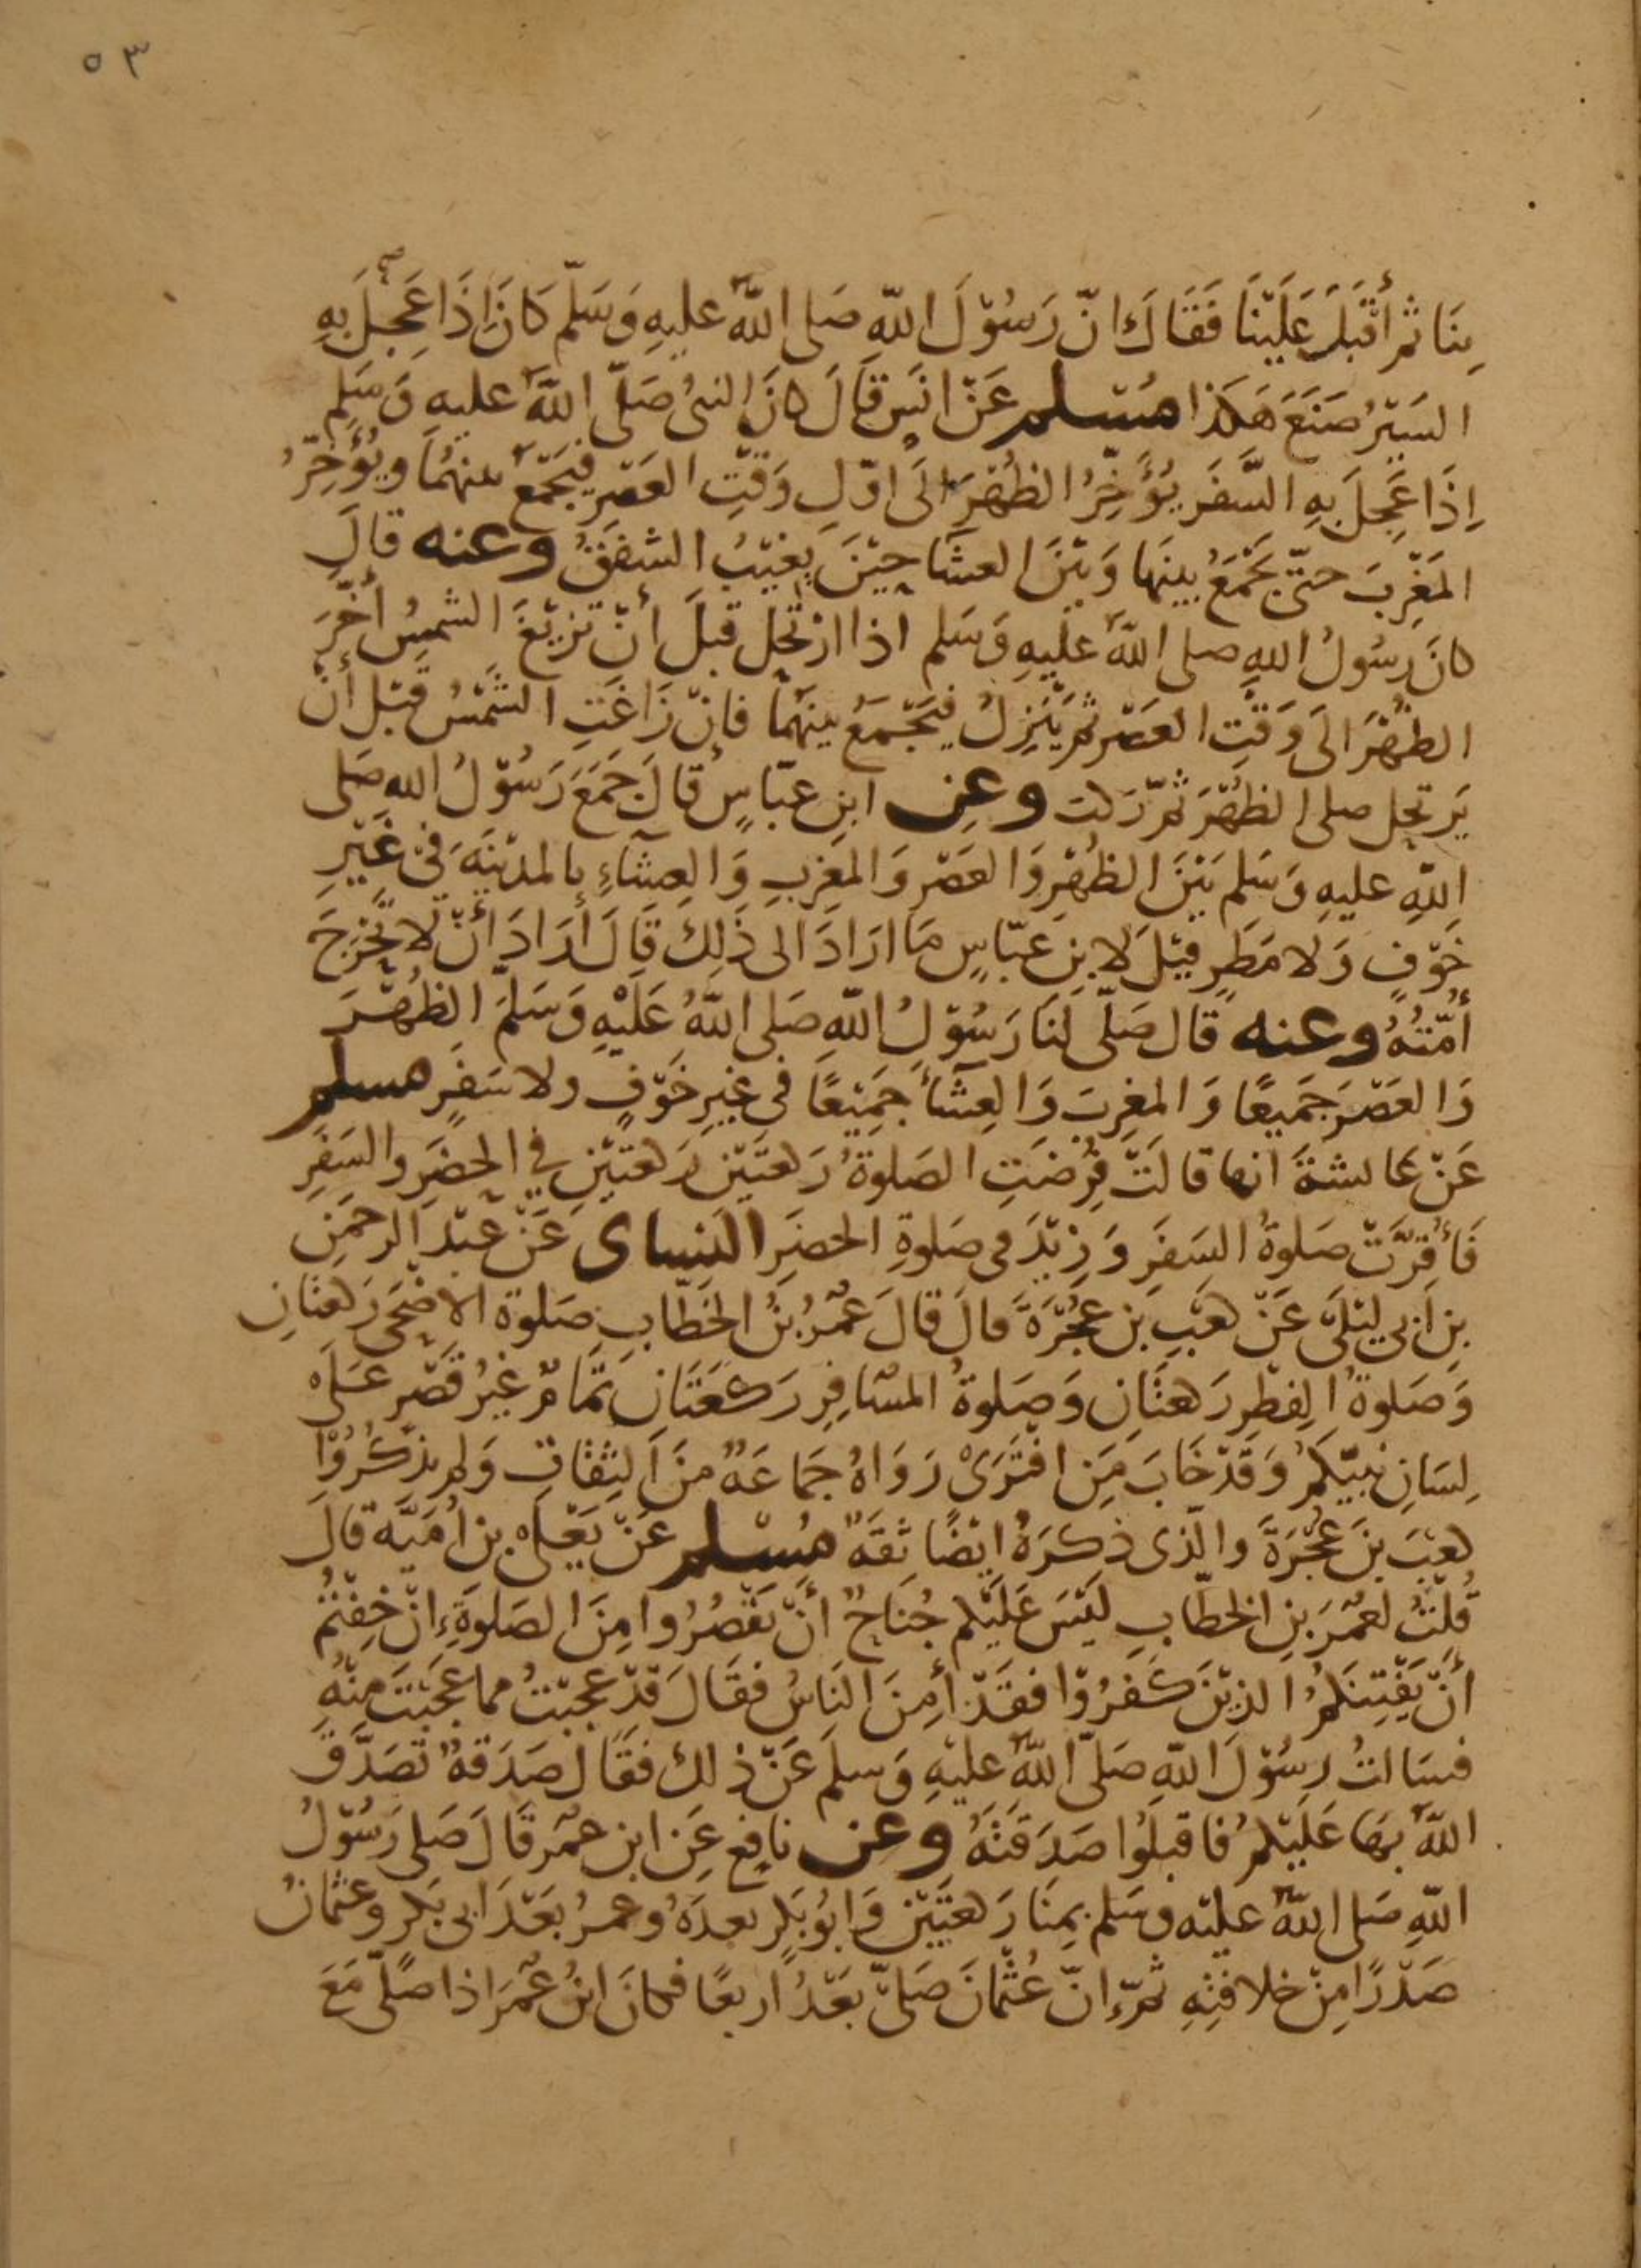 ٥٣
بِنَا ثم أَقْبَلَ عَلَيْنَا فَقَالَ انّ رَسُوْلَ اللّهِ صَلى اللّهُ عليهِ وَسَلّم كَانَ اِذَا عَجِلَ بِهِ
السَيْرُ صَنَعَ هَكذا مُسْلم عَنْ انَسٍ قَالَ كانَ النبىُ صَلّى اللّهُ عليهِ وَسَلم
اِذَا عَجِلَ بِهِ السَّفَرَ يُؤَخِّرُ الظُهْرَ الَى اوّلِ وَقْتِ العَصْرِ فيَجْمَعُ بينهُمَا ويُؤَخِّرُ
المَغْرِبَ حتّى يَجْمَعُ بينَها وَبَيْنَ العشَا حِيْنَ يَغِيْبُ الشفَقُ وعنه قالَ
كانَ رسُولُ اللهِ صلى اللّهُ عليهِ وَسَلم اذا ارْتحِل قبلَ أنْ تزيْغَ الشمسُ أخّرَ
الظُهْرَ الَى وَقْتِ العَصْر ثمّ يَنْزِلُ فيَجْمَعُ بينهُمَا فانْ زَاغَتِ الشَمْسُ قَبْل أنْ
يَرتحِل صلى الظُهْرَ ثمّ رَكبَ وعن ابنِ عبّاسٍ قالَ جَمَعَ رَسُوْلُ اللهِ صَلى
اللّهِ عليهِ وَسَلم بَيْنَ الظُهْرِ وَالعَصْرِ وَالمغِربِ وَالعِشَاءِ بالمديْنَةِ فىْ غَيْرِ
خَوْفٍ وَلا مَطَرٍ قيْلَ لابنِ عبّاسٍ مَا ارَادَ الى ذَلِكَ قَالَ أرَادَ أنْ لا يُحْرِجَ
أُمّتهُ وعنه قال صَلّى لَنَا رَسُوْلُ اللّهِ صَلى اللّهُ عَلَيْهِ وَسَلمَ الظُهْرَ
وَالعَصْرَ جَمَيعًا وَالمغربَ وَالعِشَاَ جَمِيْعًا فى غيرِ خَوْفٍ ولا سَفَرٍ مسلم
عَنْ عائشةَ انها قالَتْ فُرْضَتِ الصَلوةُ رَكعَتَيْن رَكعتَيْنِ في الحضَرِ والسَفَرِ
فَأُقرَّتْ صَلوةُ السَفَرِ وَزِيْدَ فى صَلوةِ الحضَرِ النساى عَنْ عَبْد الرحمَنِ
بنِ أبى ليْلَى عَنْ كعْبِ بن عُجْرَةَ قالَ قالَ عُمَرُ بنُ الخطّابِ صَلوة الاضْحَى رَكعتَانِ
وَصَلوةُ الفطْرِ رَكعتَانِ وَصَلوةُ المسَافِرِ رَكعَتَانِ تمَامٌ غيْرُ قَصْرٍ عَلى
لسَانِ نبيّكمْ وَقَدْ خَابَ مَنِ افْتَرَىْ رَوَاهُ جَمَاعَةٌ منَ الثِقَاتِ وَلم يذكُرُوْا
كعْبَ بنَ عُجْرَةَ والّذى ذكرَهُ ايْضًا ثقَةٌ مُسْلم عَنْ يَعْلى بن أُمَيّة قالَ
قُلتُ لعُمَرَ بنِ الخطّابِ لَيْسَ عَلَيْكم جُنَاحٌ أنْ تقْصُرُوا مِنَ الصَلوةِ اِنْ خِفْتُمْ
أنْ يَفْتِنَكمُ الذيْنَ كَفَرُوْا فقَدْ أمِنَ النَاسُ فقَالَ قَدْ عجبْتُ مما عَجبْتَ مِنْهُ
فسَالتُ رسُوْلَ اللّهِ صَلّى اللّهُ عليْهِ وَسلمَ عَنْ ذلك فقَالَ صَدَقةٌ تَصَدَّقَ
اللّهُ بهَا عَلَيْكمْ فاقبلُوا صَدَقتَهُ وعن نافِعٍ عَنِ ابن عمَر قَالَ صَلى رَسُوْلُ
اللّهِ صَلى اللّهُ عليْه وسَلم بمِنَا رَكعتَيْنِ وَابُو بَكرٍ بعدَهُ وعمرُ بَعْدَ ابى بَكرٍ وعثمانُ
صَدْرًا مِنْ خلافتِهِ ثمّ اِنّ عُثْمَانَ صَلىّ بَعْدُ اربعًا فكانَ ابنُ عُمَرَ اذا صَلّى مَعَ